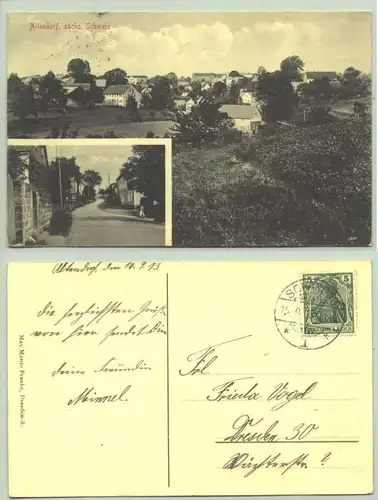 Altendorf, sächs. Schweiz
Altendorf den 10. 7. 13
die herzlichsten Grüße
von hier sendet Dir
deine Freundin
Minnel.
Max Moritz Franke, Dresden-A.
5 5
Frl.
Frieda Vogel
Dresden 30
Wächterstr. ?